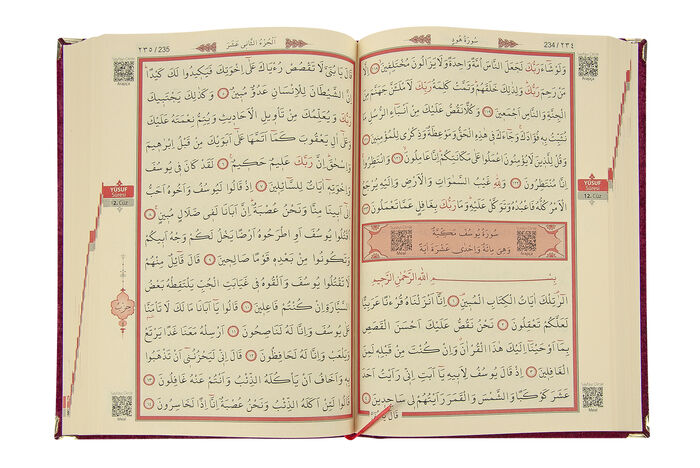 سُورَةُ هُودٍ
234 / ٢٣٤
وَلَوْ شَاءَ رَبُّكَ لَجَعَلَ النَّاسَ اُمَّةً وَاحِدَةً وَلَا يَزَالُونَ مُخْتَلِفِينَ ١١٨ اِلَّا
مَنْ رَحِمَ رَبُّكَ وَلِذٰلِكَ خَلَقَهُمْ وَتَمَّتْ كَلِمَةُ رَبِّكَ لَاَمْلَـَٔنَّ جَهَنَّمَ مِنَ
الْجِنَّةِ وَالنَّاسِ اَجْمَعِينَ ١١٩ وَكُلًّا نَقُصُّ عَلَيْكَ مِنْ اَنْبَاءِ الرُّسُلِ مَا
نُثَبِّتُ بِهِ فُؤَادَكَ وَجَاءَكَ فِي هٰذِهِ الْحَقُّ وَمَوْعِظَةٌ وَذِكْرٰى لِلْمُؤْمِنِينَ ١٢٠
وَقُلْ لِلَّذِينَ لَا يُؤْمِنُونَ اعْمَلُوا عَلٰى مَكَانَتِكُمْ اِنَّا عَامِلُونَ ١٢١ وَانْتَظِرُوا
اِنَّا مُنْتَظِرُونَ ١٢٢ وَلِلّٰهِ غَيْبُ السَّمٰوَاتِ وَالْاَرْضِ وَاِلَيْهِ يُرْجَعُ
الْاَمْرُ كُلُّهُ فَاعْبُدْهُ وَتَوَكَّلْ عَلَيْهِ وَمَا رَبُّكَ بِغَافِلٍ عَمَّا تَعْمَلُونَ ١٢٣
سُورَةُ يُوسُفَ مَكِّيَّةٌ
وَهِيَ مِائَةٌ وَاِحْدٰى عَشْرَةَ اٰيَةً
Meal
Arapça
بِسْمِ اللّٰهِ الرَّحْمٰنِ الرَّحِيمِ
الٓرٰ تِلْكَ اٰيَاتُ الْكِتَابِ الْمُبِينِ ١ اِنَّا اَنْزَلْنَاهُ قُرْءٰنًا عَرَبِيًّا
لَعَلَّكُمْ تَعْقِلُونَ ٢ نَحْنُ نَقُصُّ عَلَيْكَ اَحْسَنَ الْقَصَصِ
بِمَا اَوْحَيْنَا اِلَيْكَ هٰذَا الْقُرْاٰنَ وَاِنْ كُنْتَ مِنْ قَبْلِهِ لَمِنَ
الْغَافِلِينَ ٣ اِذْ قَالَ يُوسُفُ لِاَبِيهِ يَا اَبَتِ اِنِّي رَاَيْتُ اَحَدَ
عَشَرَ كَوْكَبًا وَالشَّمْسَ وَالْقَمَرَ رَاَيْتُهُمْ لِي سَاجِدِينَ ٤
قَالَ يَا بُنَيَّ
Arapça
YÛSUF
Sûresi
12. Cüz
Meal
اَلْجُزْءُ الثَّانِي عَشَرَ
٢٣٥ / 235
قَالَ يَا بُنَيَّ لَا تَقْصُصْ رُءْيَاكَ عَلٰى اِخْوَتِكَ فَيَكِيدُوا لَكَ كَيْدًا
اِنَّ الشَّيْطَانَ لِلْاِنْسَانِ عَدُوٌّ مُبِينٌ ٥ وَكَذٰلِكَ يَجْتَبِيكَ
رَبُّكَ وَيُعَلِّمُكَ مِنْ تَأْوِيلِ الْاَحَادِيثِ وَيُتِمُّ نِعْمَتَهُ عَلَيْكَ
وَعَلٰى اٰلِ يَعْقُوبَ كَمَا اَتَمَّهَا عَلٰى اَبَوَيْكَ مِنْ قَبْلُ اِبْرٰهِيمَ
وَاِسْحٰقَ اِنَّ رَبَّكَ عَلِيمٌ حَكِيمٌ ٦ لَقَدْ كَانَ فِي يُوسُفَ
وَاِخْوَتِهِ اٰيَاتٌ لِلسَّائِلِينَ ٧ اِذْ قَالُوا لَيُوسُفُ وَاَخُوهُ اَحَبُّ
اِلٰى اَبِينَا مِنَّا وَنَحْنُ عُصْبَةٌ اِنَّ اَبَانَا لَفِي ضَلَالٍ مُبِينٍ ٨
اُقْتُلُوا يُوسُفَ اَوِ اطْرَحُوهُ اَرْضًا يَخْلُ لَكُمْ وَجْهُ اَبِيكُمْ
وَتَكُونُوا مِنْ بَعْدِهِ قَوْمًا صَالِحِينَ ٩ قَالَ قَائِلٌ مِنْهُمْ
لَا تَقْتُلُوا يُوسُفَ وَاَلْقُوهُ فِي غَيَابَتِ الْجُبِّ يَلْتَقِطْهُ بَعْضُ
السَّيَّارَةِ اِنْ كُنْتُمْ فَاعِلِينَ ١٠ قَالُوا يَا اَبَانَا مَا لَكَ لَا تَأْمَنَّا
عَلٰى يُوسُفَ وَاِنَّا لَهُ لَنَاصِحُونَ ١١ اَرْسِلْهُ مَعَنَا غَدًا يَرْتَعْ
وَيَلْعَبْ وَاِنَّا لَهُ لَحَافِظُونَ ١٢ قَالَ اِنِّي لَيَحْزُنُنِي اَنْ تَذْهَبُوا
بِهِ وَاَخَافُ اَنْ يَأْكُلَهُ الذِّئْبُ وَاَنْتُمْ عَنْهُ غَافِلُونَ ١٣
قَالُوا لَئِنْ اَكَلَهُ الذِّئْبُ وَنَحْنُ عُصْبَةٌ اِنَّا اِذًا لَخَاسِرُونَ ١٤
Arapça
YÛSUF
Sûresi
12. Cüz
حزب
Meal